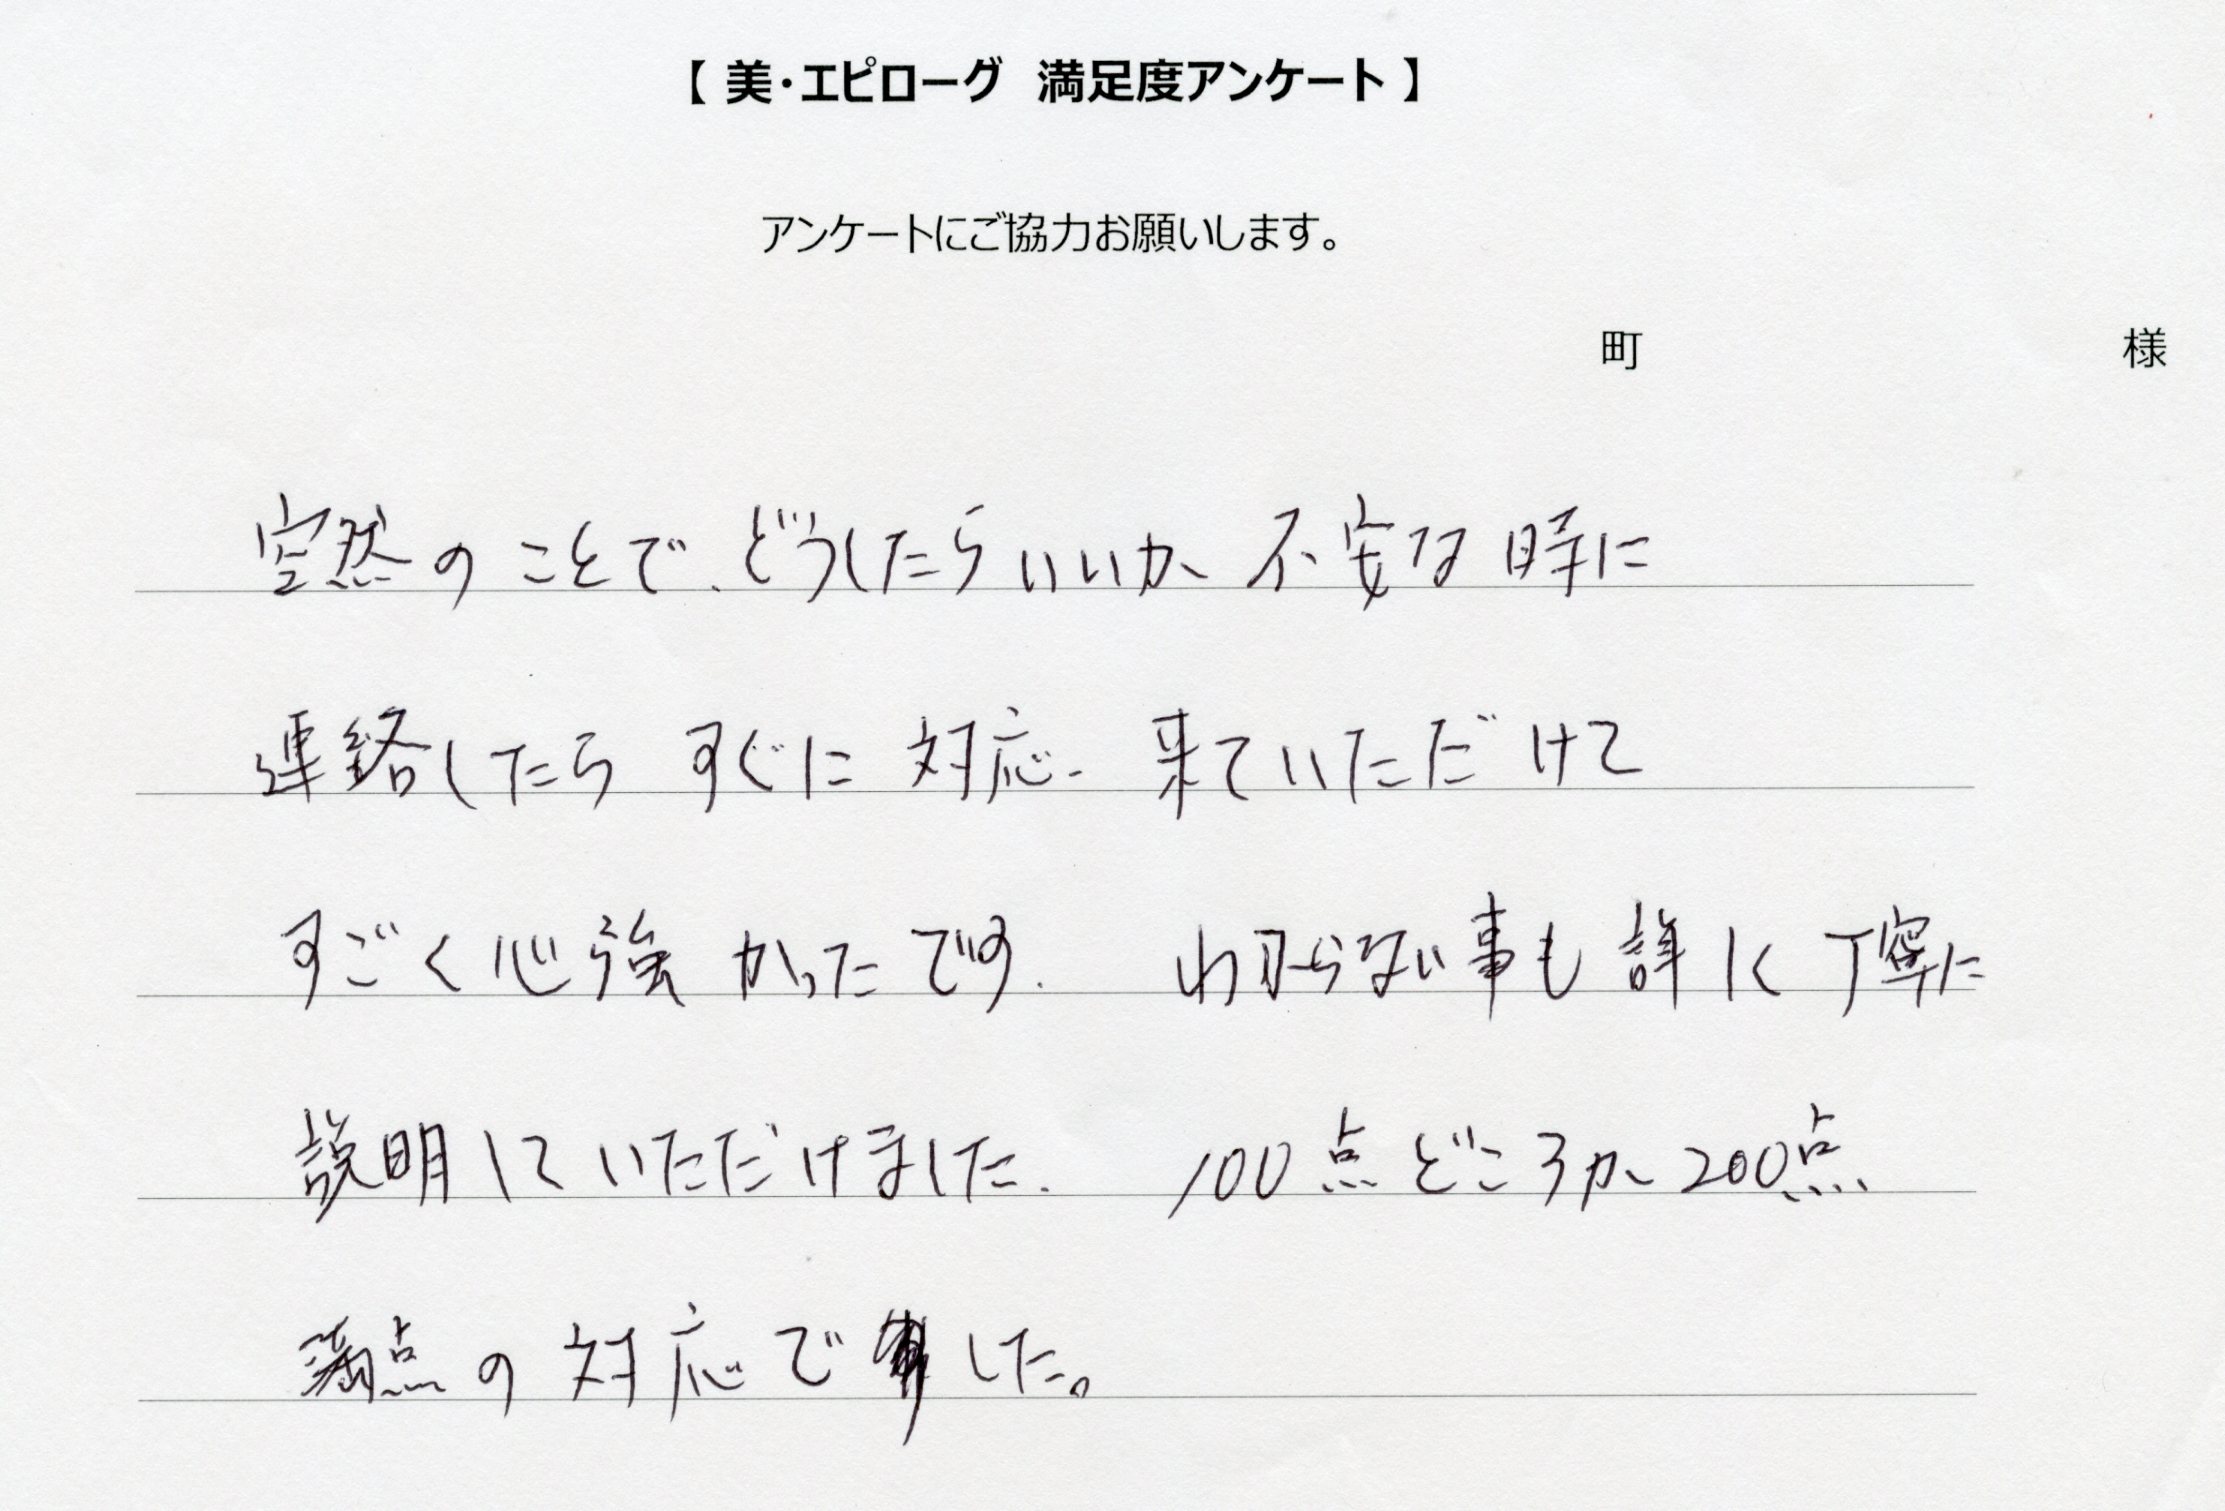 【 美・エピローグ　満足度アンケート 】
アンケートにご協力お願いします。
町　様
空然のことで、どうしたらいいか 不安な時に
連絡したら すぐに 対応、来ていただけて
すごく心強かったです。 わからない事も 詳しく 丁寧に
説明していただけました。 100点どころか 200点
満点の 対応で した。